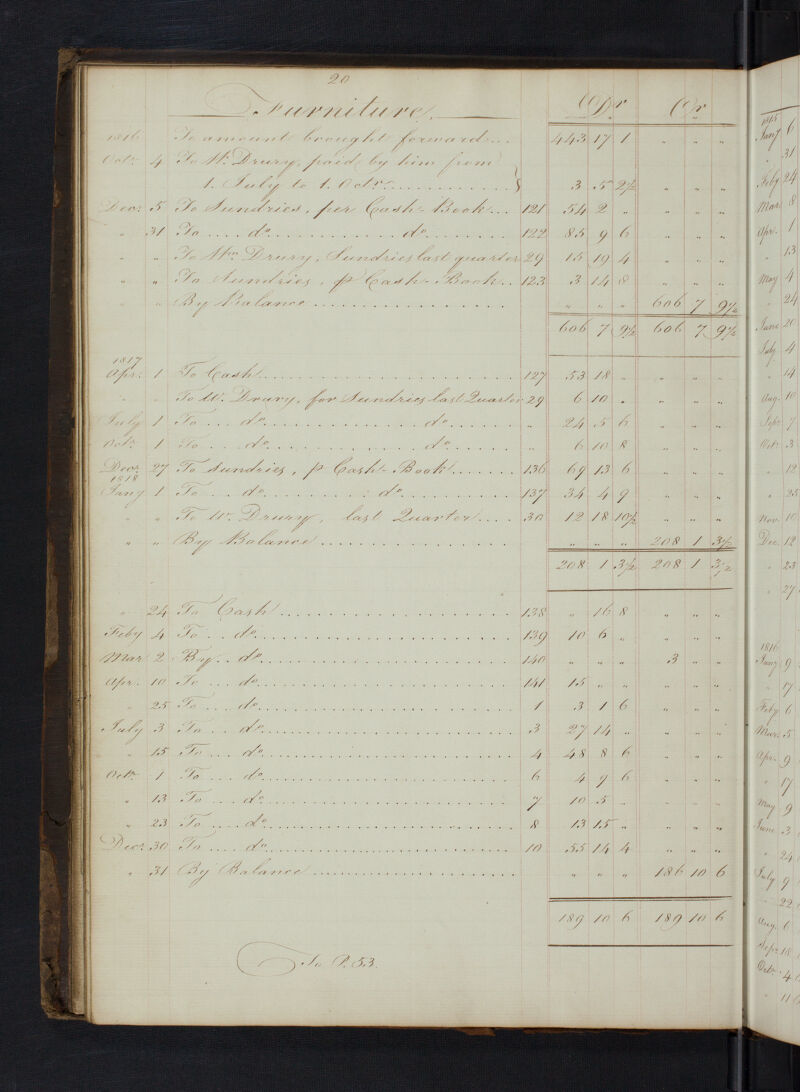 20
Furniture Dr Cr
1816 To amount brought forward... 443 17 1 " " "
Octr. 4 To Wm. Drury, paid by him from
1. July to 1. Octr............ } 3 5 2½ " " "
Decr. 5 To Sundries, per Cash-Book... 121 54 2 " " " "
" 31 To .... do. ............ do. ....... 122 85 9 6 " " "
" " To Wm. Drury, Sundries last quarter 29 15 19 4 " " "
" " To Sundries, p Cash-Book.. 123 3 14 8 " " "
" " By Balance ................. " " " 606 7 9½
606 7 9½ 606 7 9½
1817
Apr. 1 To Cash ...................... 127 53 18 " " " "
" " To W. Drury, for Sundries last Quarter 29 6 10 " " " "
July 1 To .... do. .............. do. ...... " 24 5 6 " " "
Octr. 1 To .... do. .............. do. ...... " 6 10 8 " " "
Decr. 27 To Sundries, p Cash-Book ...... 136 69 13 6 " " "
1818
Jany 1 To ... do. ......... : do. .......... 137 34 4 9 " " "
" " To W. Drury, last Quarter .... 30 12 18 10½ " " "
" " By Balance ................. " " " 208 1 3½
208 1 3½ 208 1 3½
" 24 To Cash ..................... 138 " 16 8 " " "
Feby 4 To ... do. ..................... 139 10 6 " " " "
Mar 2 By .. do. ..................... 140 " " " 3 " "
Apr. 10 To ... do. ..................... 141 15 " " " " "
" 25 To ... do. ..................... 1 3 1 6 " " "
July 3 To ... do. ..................... 3 27 14 " " " "
" 15 To ... do. ..................... 4 48 8 6 " " "
Octr. 1 To ... do. ..................... 6 4 9 6 " " "
" 13 To ... do. ..................... 7 10 5 " " " "
" 23 To ... do. ..................... 8 13 15 " " " "
Decr. 30 To ... do. ..................... 10 55 14 4 " " "
" 31 By Balance .................. " " " 186 10 6
189 10 6 189 10 6
To P. 53.
1815
Jany 6
" 31
Feby 24
Mar 8
Apr. 1
" 13
May 4
" 24
June 20
July 4
" 14
Aug. 10
Sepr. 7
Octr. 3
" 12
" 25
Nov. 10
Dec. 12
" 23
" 27
1816
Jany 9
" 17
Feby 6
Mar. 5
Apr. 9
" 17
May 9
June 3
" 24
July 9
" 22
Aug. 6
Sepr. 18
Octr. 4
" 11